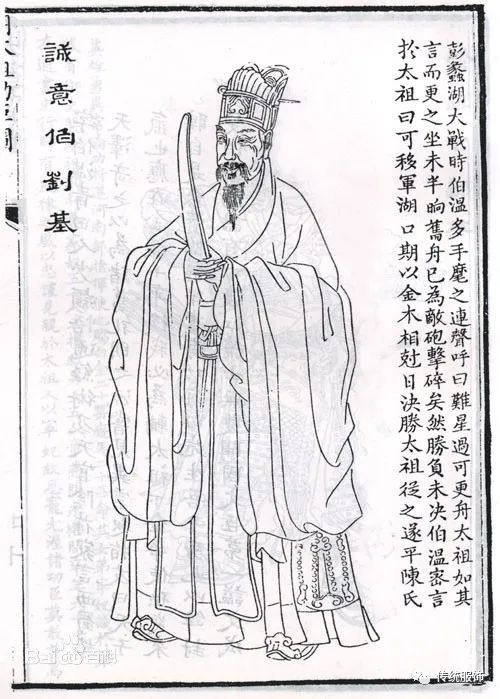 彭蠡湖大戰時伯溫多手麾之連聲呼曰難星過可更舟太祖如其
言而更之坐未半晌舊舟已為敵砲擊碎矣然勝負未决伯溫密言
扵太祖曰可移軍湖口期以金木相尅日決勝太祖從之遂平陳氏
誠意伯劉基
Baidu百科
传统服饰